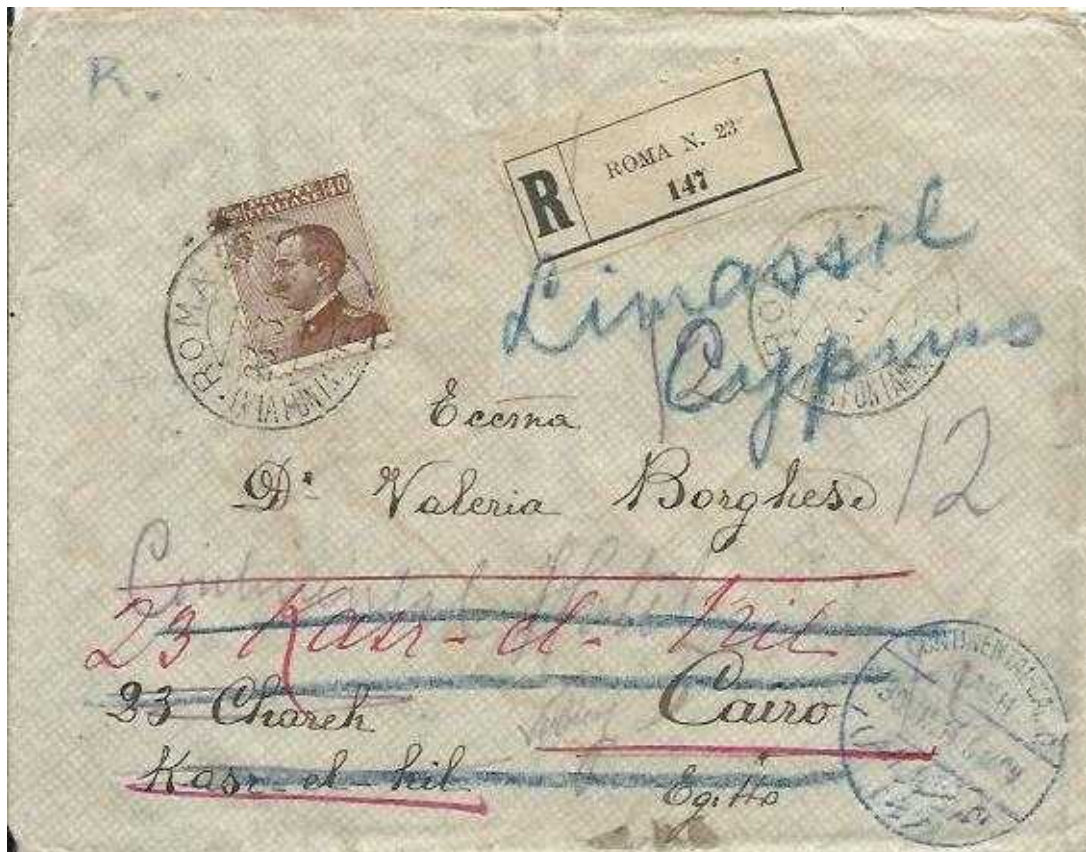 R.
ITALIANE 40
R ROMA N. 23
147
ROMA
Limassol
Cyprus
Eccma
Da Valeria Borghese
12
Continental Hotel
23 Kasr-el-Nil
23 Chareh Cairo
Kasr-el-hil Egitto
CONTINENTAL
CAIRO